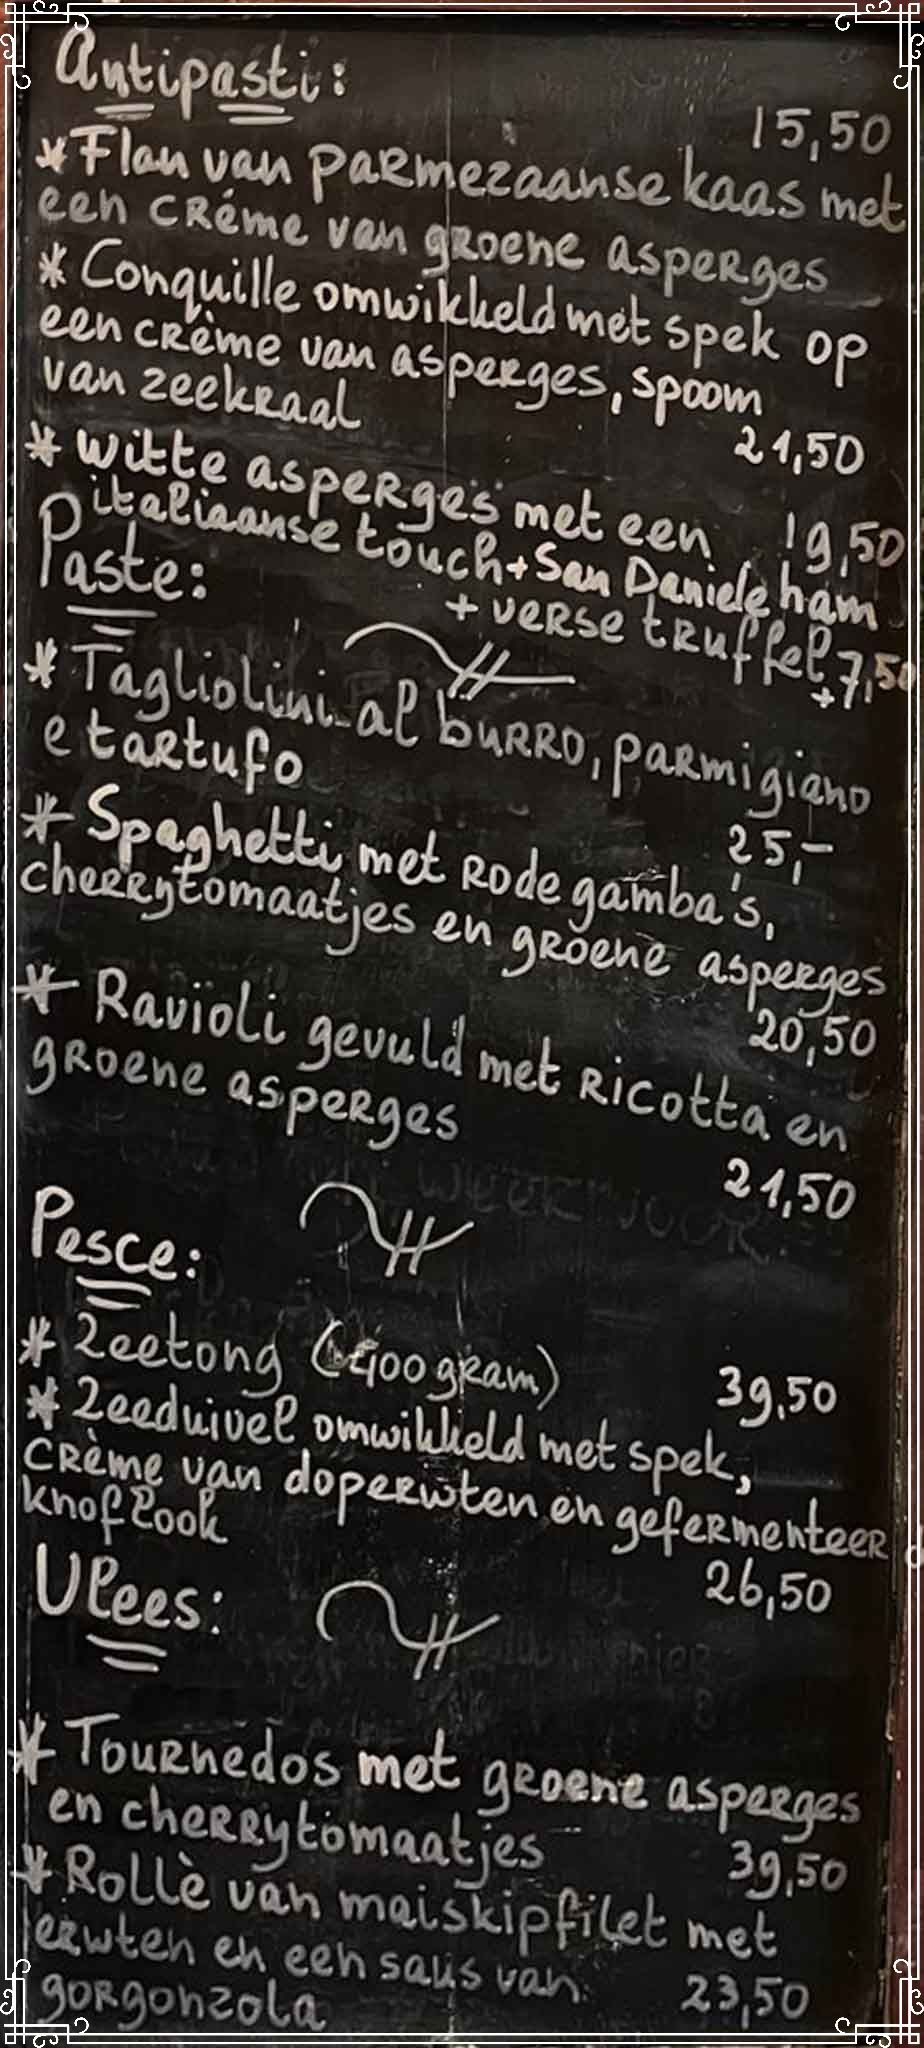 Antipasti:
15,50
* Flan van parmezaanse kaas met
een créme van groene asperges
* Conquille omwikkeld met spek op
een crème van asperges, spoom
van zeekraal
21,50
* witte asperges met een 19,50
italiaanse touch + San Daniele ham
+ verse truffel +7,50
Paste:
* Tagliolini al burro, parmigiano
e tartufo
25,-
* Spaghetti met rode gamba's,
cherrytomaatjes en groene asperges
20,50
* Ravioli gevuld met ricotta en
groene asperges
21,50
Pesce:
* Zeetong (400 gram) 39,50
* Zeeduivel omwikkeld met spek,
crème van doperwten en gefermenteerd
knoflook
26,50
Vlees:
* Tournedos met groene asperges
en cherrytomaatjes 39,50
* Rollè van maiskipfilet met
erwten en een saus van 23,50
gorgonzola